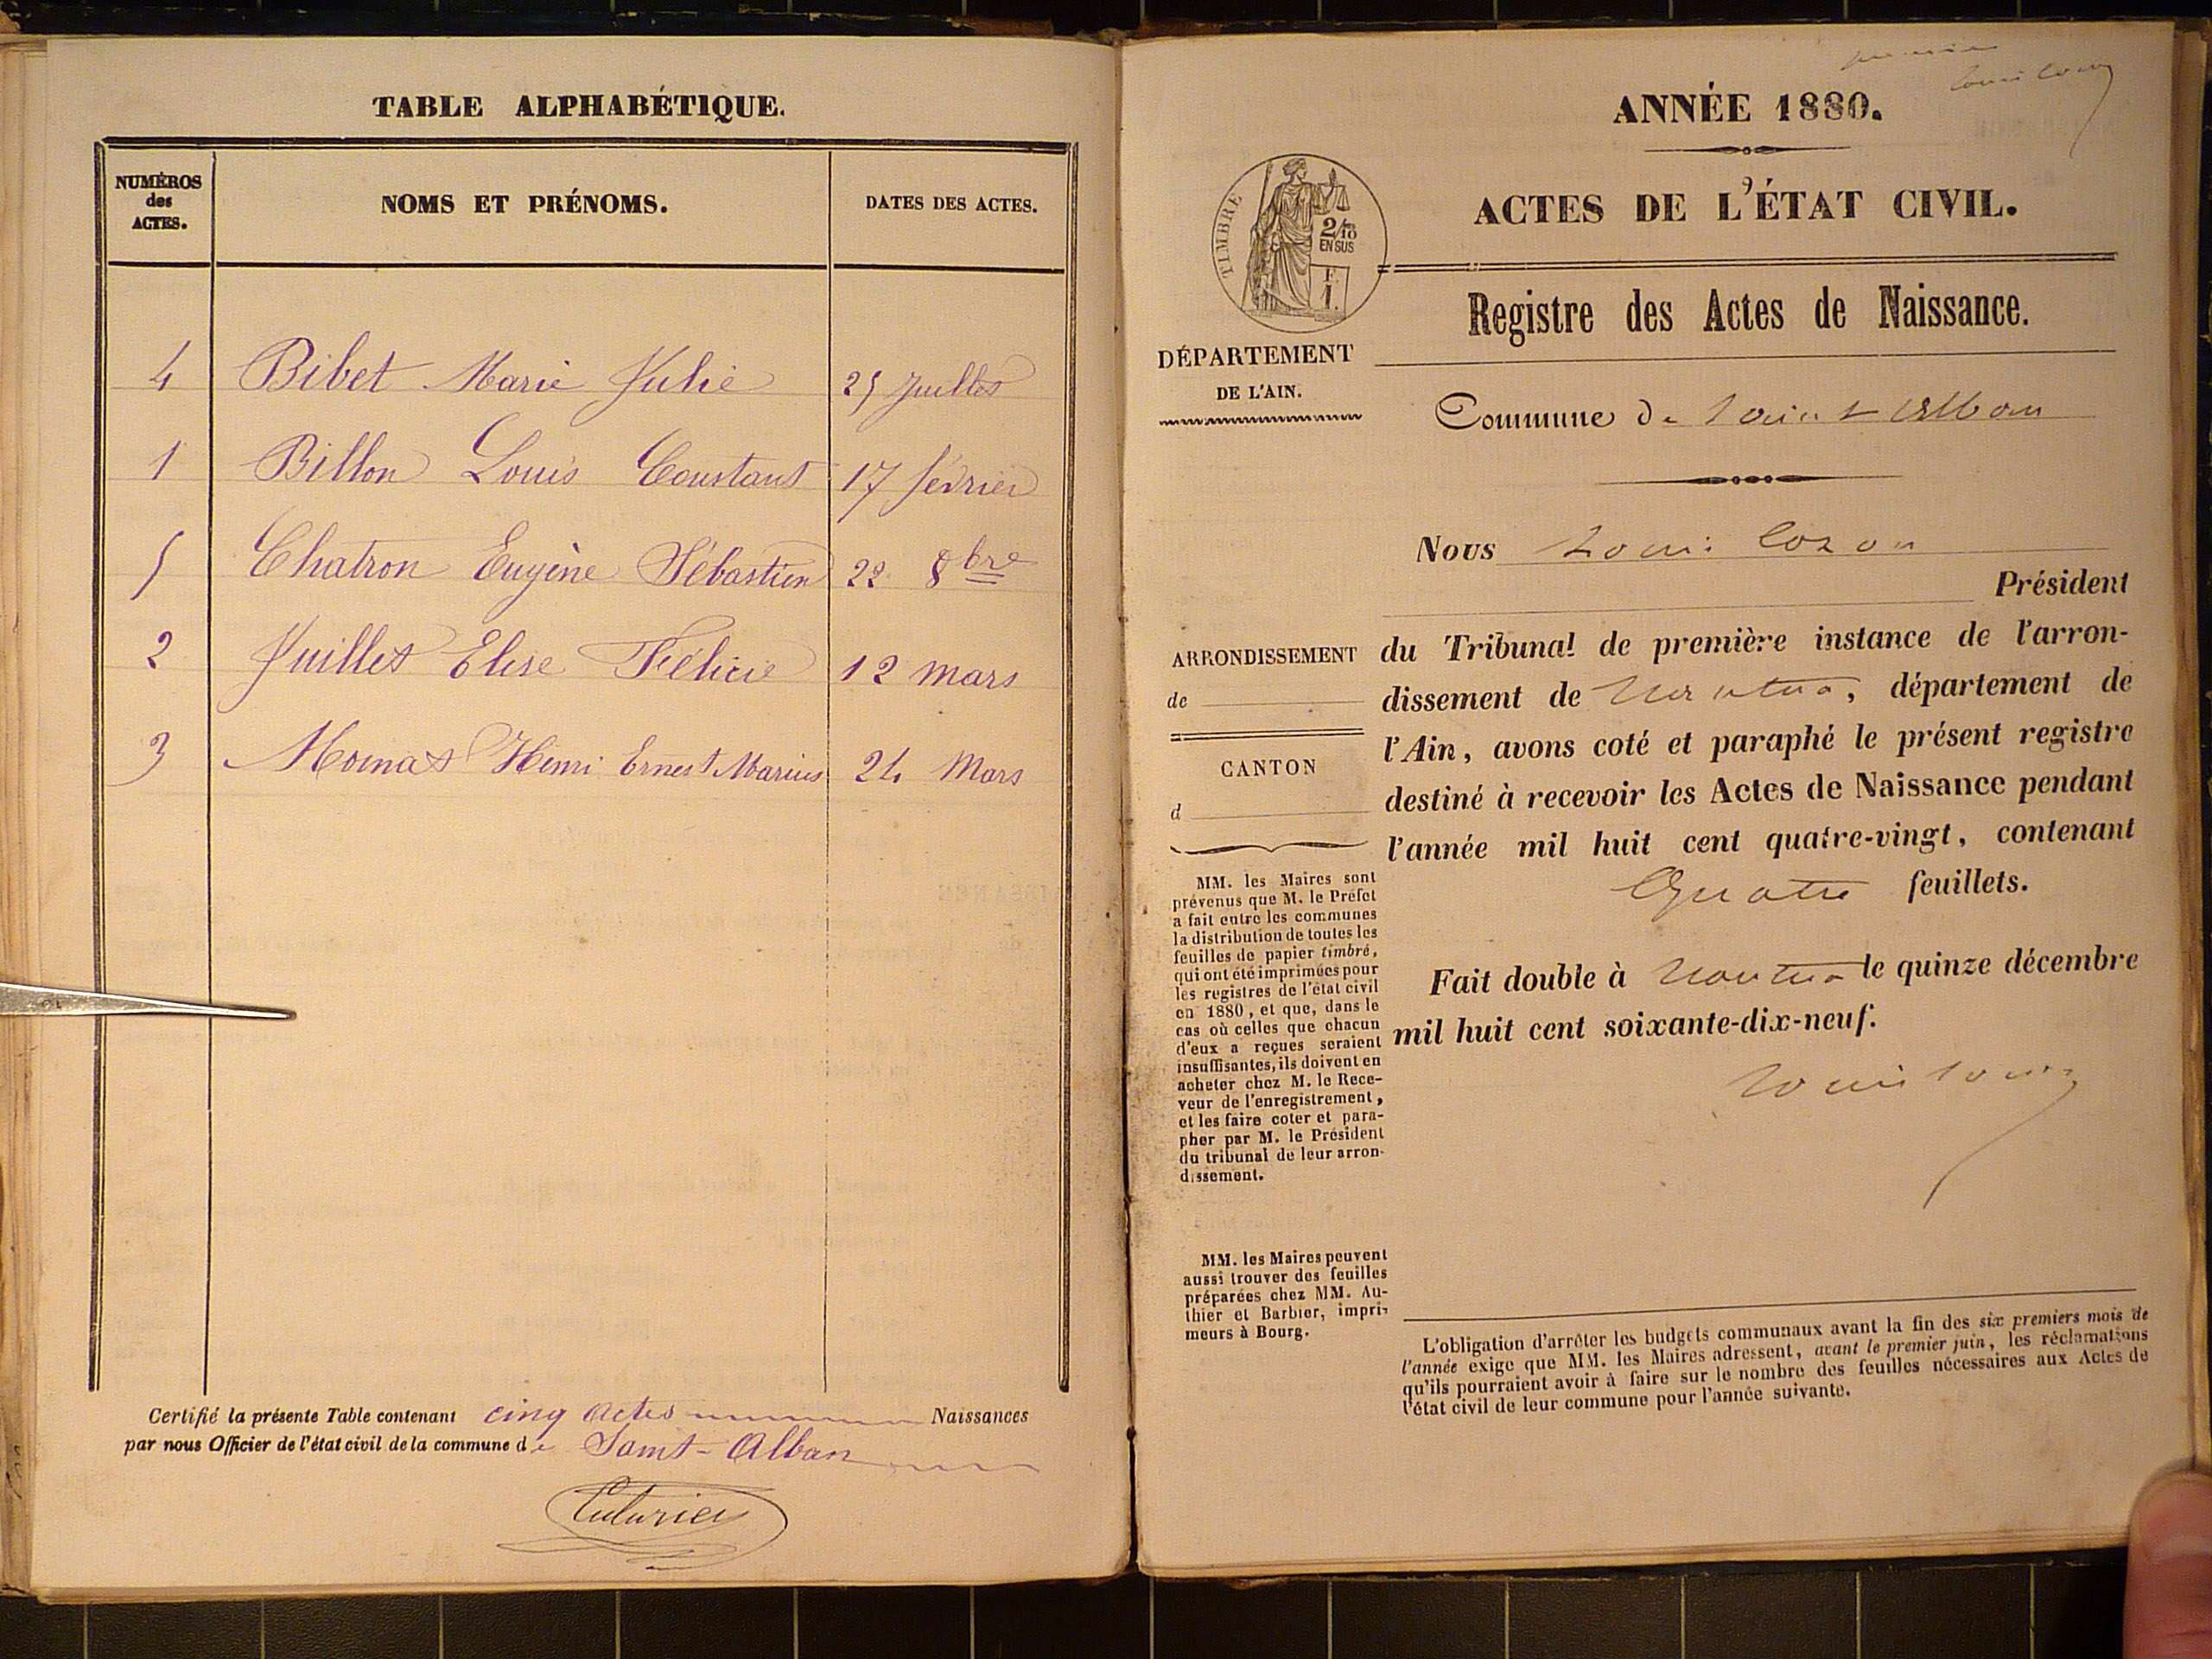 TABLE ALPHABÉTIQUE.
NUMÉROS des ACTES. NOMS ET PRÉNOMS. DATES DES ACTES.
4 Bibet Marie Julie 25 Juillet
1 Billon Louis Constant 17 février
5 Chatron Eugène Sébastien 22 8bre
2 Juillet Elise Félicie 12 mars
3 Moinat Henri Ernest Marius 24 Mars
Certifié la présente Table contenant cinq actes Naissances
par nous Officier de l'état civil de la commune de Saint-Alban
ANNÉE 1880.
ACTES DE L'ÉTAT CIVIL.
TIMBRE
2/10
EN SUS
F.
1.
Registre des Actes de Naissance.
DÉPARTEMENT
DE L'AIN.
Commune de Saint Alban
Nous Louis Cozon
Président
ARRONDISSEMENT
de
CANTON
d
du Tribunal de première instance de l'arron-
dissement de Nantua, département de
l'Ain, avons coté et paraphé le présent registre
destiné à recevoir les Actes de Naissance pendant
l'année mil huit cent quatre-vingt, contenant
Quatre feuillets.
Fait double à Nantua le quinze décembre
mil huit cent soixante-dix-neuf.
MM. les Maires sont
prévenus que M. le Préfet
a fait entre les communes
la distribution de toutes les
feuilles de papier timbré,
qui ont été imprimées pour
les registres de l'état civil
en 1880, et que, dans le
cas où celles que chacun
d'eux a reçues seraient
insuffisantes, ils doivent en
acheter chez M. le Rece-
veur de l'enregistrement,
et les faire coter et para-
pher par M. le Président
du tribunal de leur arron-
dissement.
MM. les Maires peuvent
aussi trouver des feuilles
préparées chez MM. Au-
thier et Barbier, impri-
meurs à Bourg.
L'obligation d'arrêter les budgets communaux avant la fin des six premiers mois de
l'année exige que MM. les Maires adressent, avant le premier juin, les réclamations
qu'ils pourraient avoir à faire sur le nombre des feuilles nécessaires aux Actes de
l'état civil de leur commune pour l'année suivante.